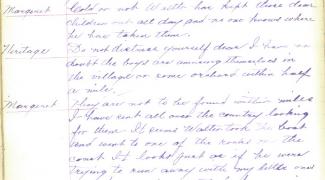 Margaret Cold or not Walter has kept those dear
children out all day and no one knows where
he has taken them.
Heritage Do not distress yourself dear I have no
doubt the boys are amusing themselves in
the village or some orchard within half
a mile.
Margaret They are not to be found within miles
I have sent all over the country looking
for them. It seems Walter took the boat
and went to one of the rocks on the
coast It looks just as if he were
trying to run away with my little ones